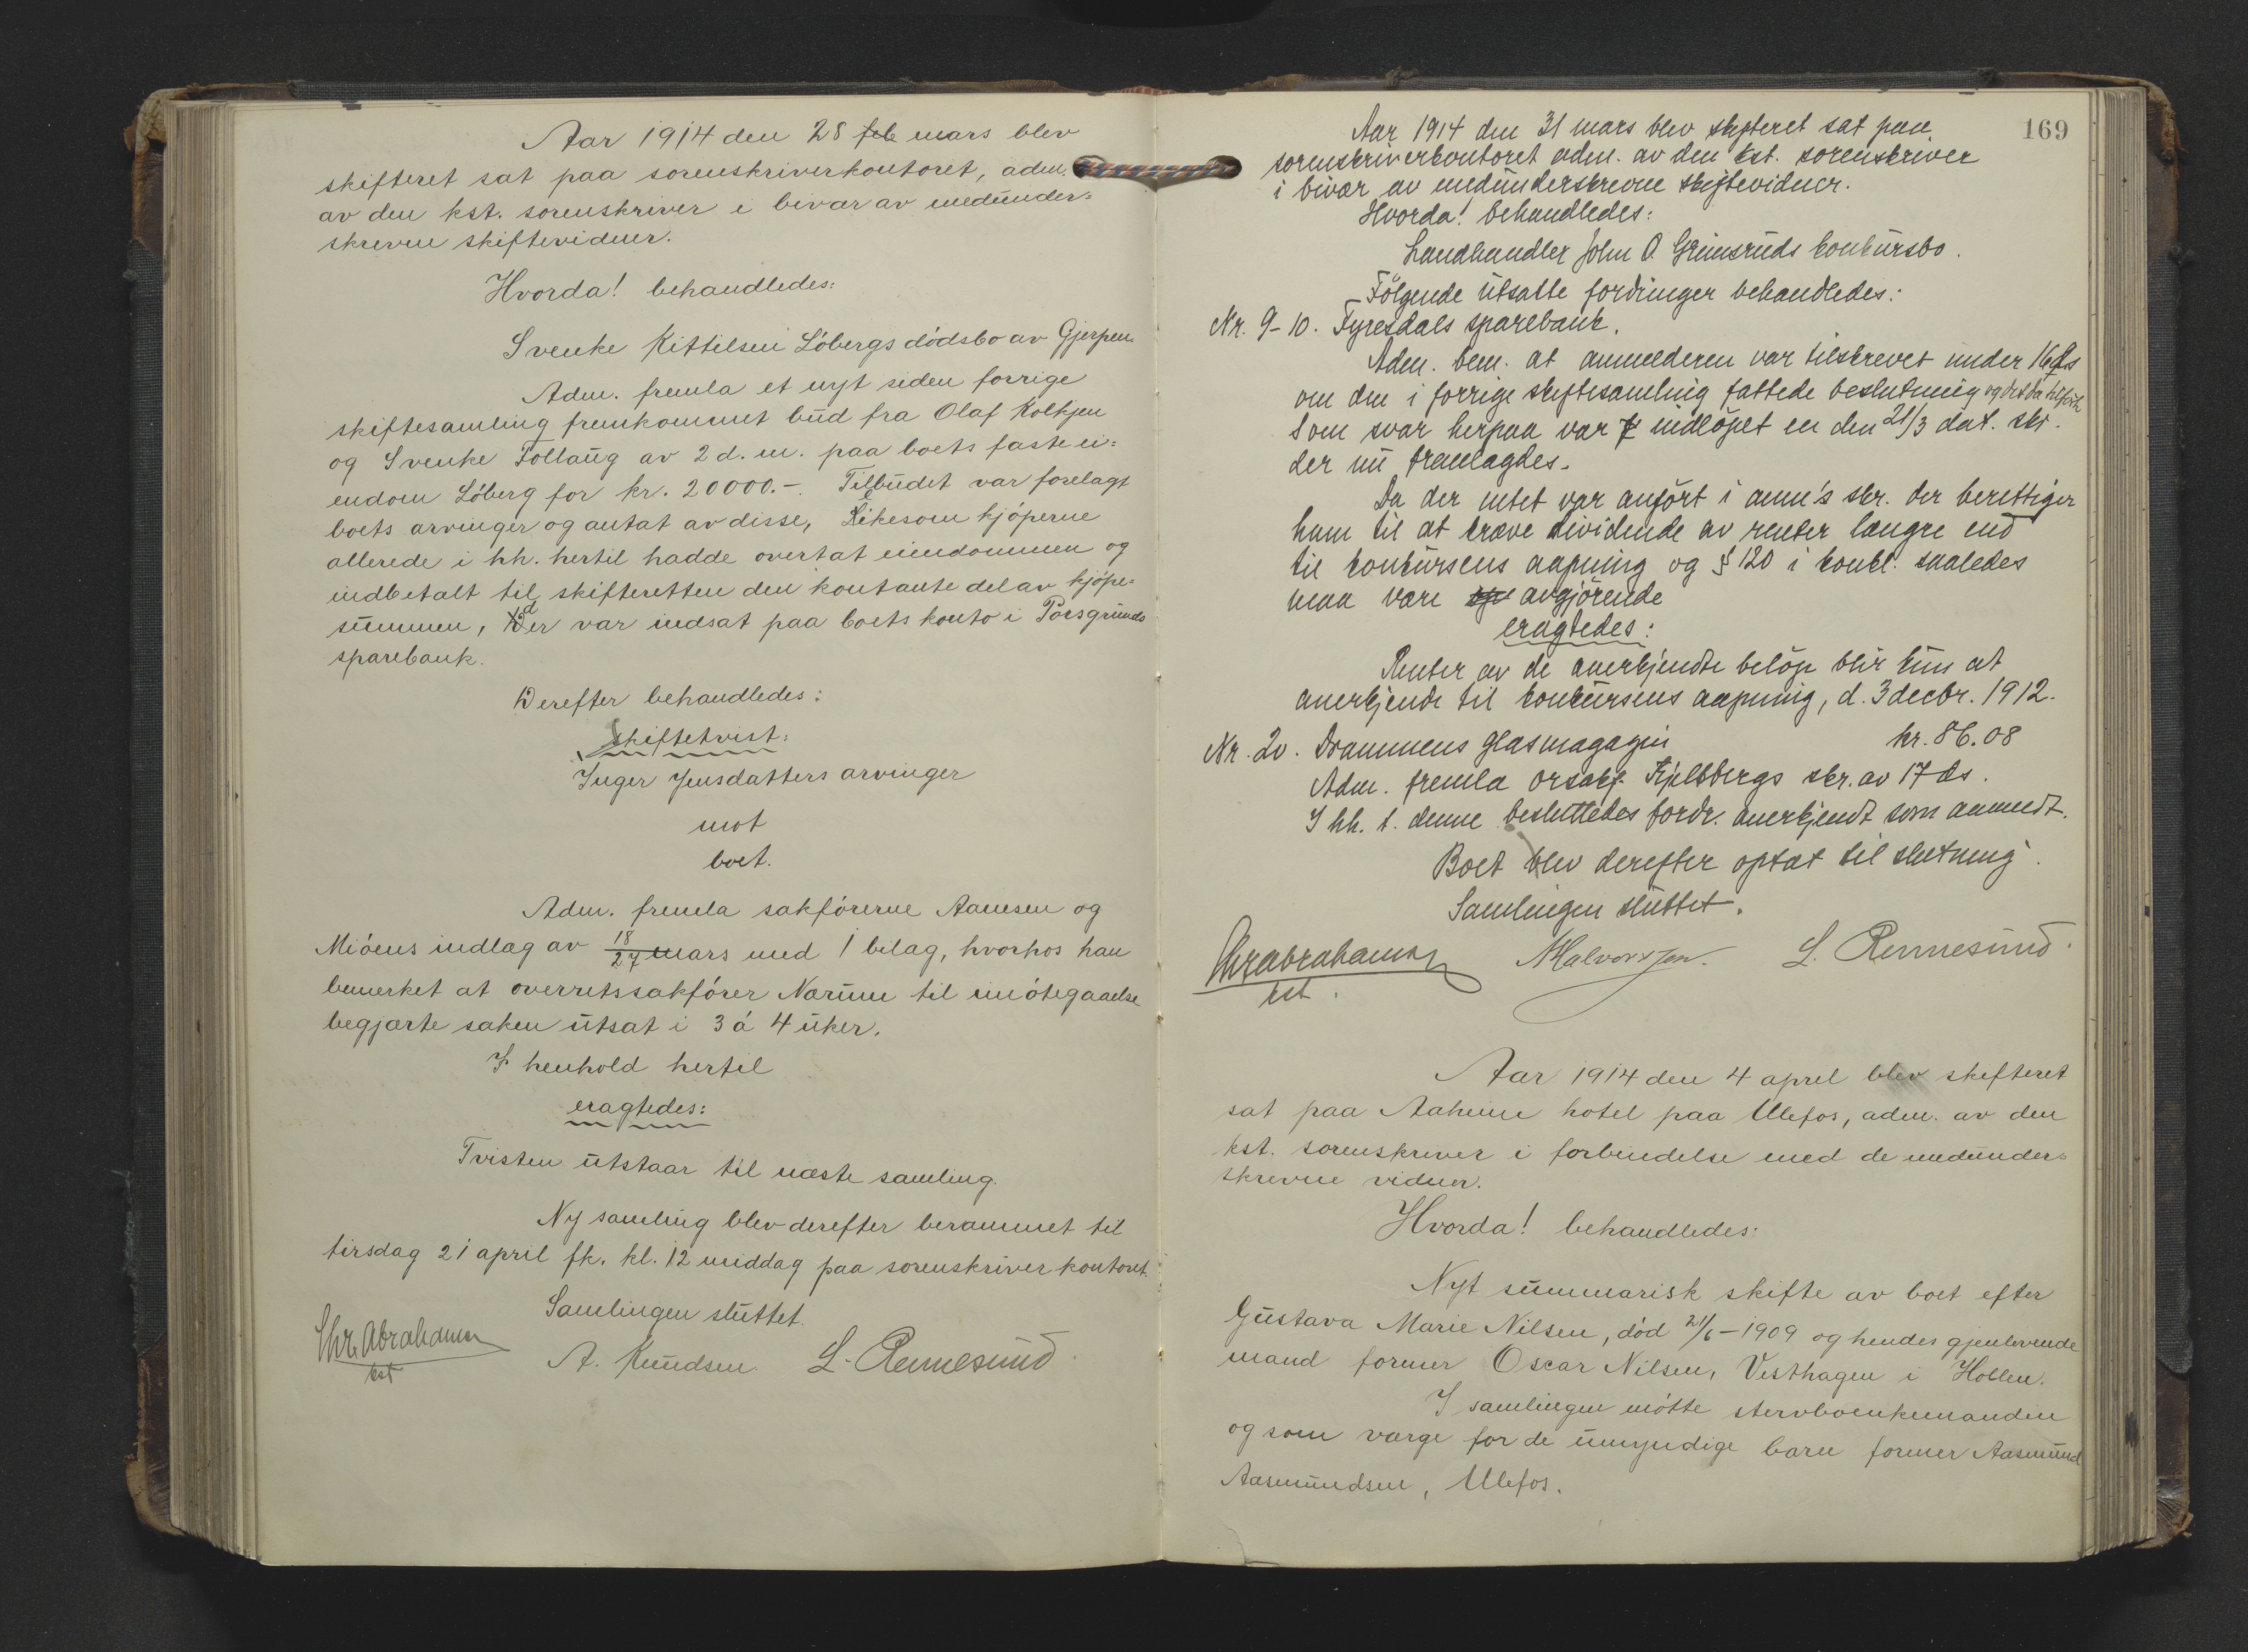 Aar 1914 den 28 feb mars blev
skifteret sat paa sorenskriverkontoret, adm.
av den kst. sorenskriver i bivær av medunder=
skrevne skiftevidner.
Hvorda! behandledes:
Svenke Kittilsen Løbergs dødsbo av Gjerpen.
Adm. fremla et nyt siden forrige
skiftesamling fremkommet bud fra Olaf Kolkjen
og Svenke Follaug av 2 d. m. paa boets faste ei=
endom Løberg for kr. 20000.-. Tilbudet var forelagt
boets arvinger og antat av disse, Likesom kjøperne
allerede i hh. hertil hadde overtat eiendommen og
indbetalt til skifteretten den kontante del av kjøpe=
summen, der var indsat paa boets konto i Porsgrunds
sparebank.
Derefter behandledes:
Skiftetvist:
Inger Jensdatters arvinger
mot
boet.
Adm. fremla sakførerne Aamsen og
Miøens indlag av 18/27 mars med 1 bilag, hvorhos han
bemerket at overretssakfører Nørum til imøtegaaelse
begjærte saken utsat i 3 á 4 uker.
I henhold hertil
eragtedes:
Tvisten utstaar til næste samling.
Ny samling blev derefter berammet til
tirsdag 21 april fk. kl. 12 middag paa sorenskriverkontoret.
Samlingen sluttet.
Chr. Abrahamsen
kst
A. Knudsen L. Rennesund
169
Aar 1914 den 31 mars blev skifteret sat paa
sorenskriverkontoret adm. av den kst. sorenskriver
i bivær av medunderskrevne skiftevidner.
Hvorda! behandledes:
Landhandler John O. Grimsruds konkursbo.
Følgende utsatte fordringer behandledes:
Nr. 9-10. Fyresdals sparebank.
Adm. bem. at anmelderen var tilskrevet under 16 ds
om den i forrige skiftesamling fattede beslutning og det da
Som svar herpaa var indløpet en den 21/3 dat. skr.
der nu fremlagdes.
Da der intet var anført i anm's skr. der berettiger
ham til at kræve dividende av renter længre end
til konkursens aapning og § 120 i konkl. saaledes
maa være avgjørende
eragtedes:
Renter av de anerkjendte beløp blir kun at
anerkjende til konkursens aapning, d. 3 decbr. 1912.
Nr. 20. Drammens glasmagazin kr. 86.08
Adm. fremla orsakf. Kjelsbergs skr. av 17 ds.
I hh. t. denne besluttedes fordr. anerkjendt som anmeldt.
Boet blev derefter optat til slutning.
Samlingen sluttet.
Chr Abrahamsen N Halvorsen. L. Rennesund.
kst.
Aar 1914 den 4 april blev skifteret
sat paa Aaheim hotel paa Ulefos, adm. av den
kst. sorenskriver i forbindelse med de medunder=
skrevne vidner.
Hvorda! behandledes:
Nyt summarisk skifte av boet efter
Gustava Marie Nilsen, død 21/6-1909 og hendes gjenlevende
mand former Oscar Nilsen, Vesthagen i Hollen.
I samlingen møtte stervboenkemanden
og som værge for de umyndige barn former Aasmund
Aasmundsen, Ulefos.